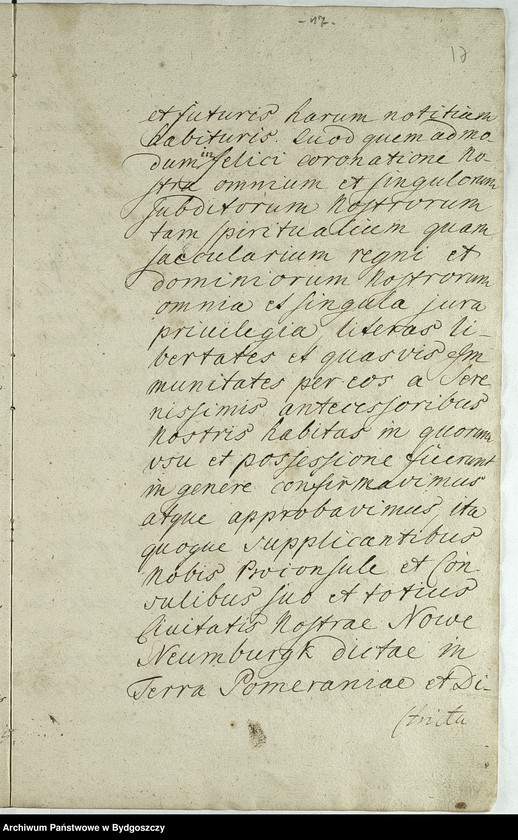 - 17. -
17
et futuris harum notitiam
habituris. Quod quem admo
dum in felici coronatione No-
stra omnium et singulorum
subditorum Nostrorum
tam spiritualium quam
saecularium regni et
dominiorum Nostrorum
omnia et singula jura
privilegia literas li-
bertates et quasvis Im
munitates per eos a Sere
nissimis antecessoribus
Nostris habitas in quorum
usu et possessione fuerunt
in genere confirmavimus
atque approbavimus, ita
quoque supplicantibus
Nobis Proconsule et Con-
sulibus suo et totius
Civitatis Nostrae Nowe
Neumburgk dictae in
Terra Pomeraniae et Di-
strictu
Archiwum Państwowe w Bydgoszczy